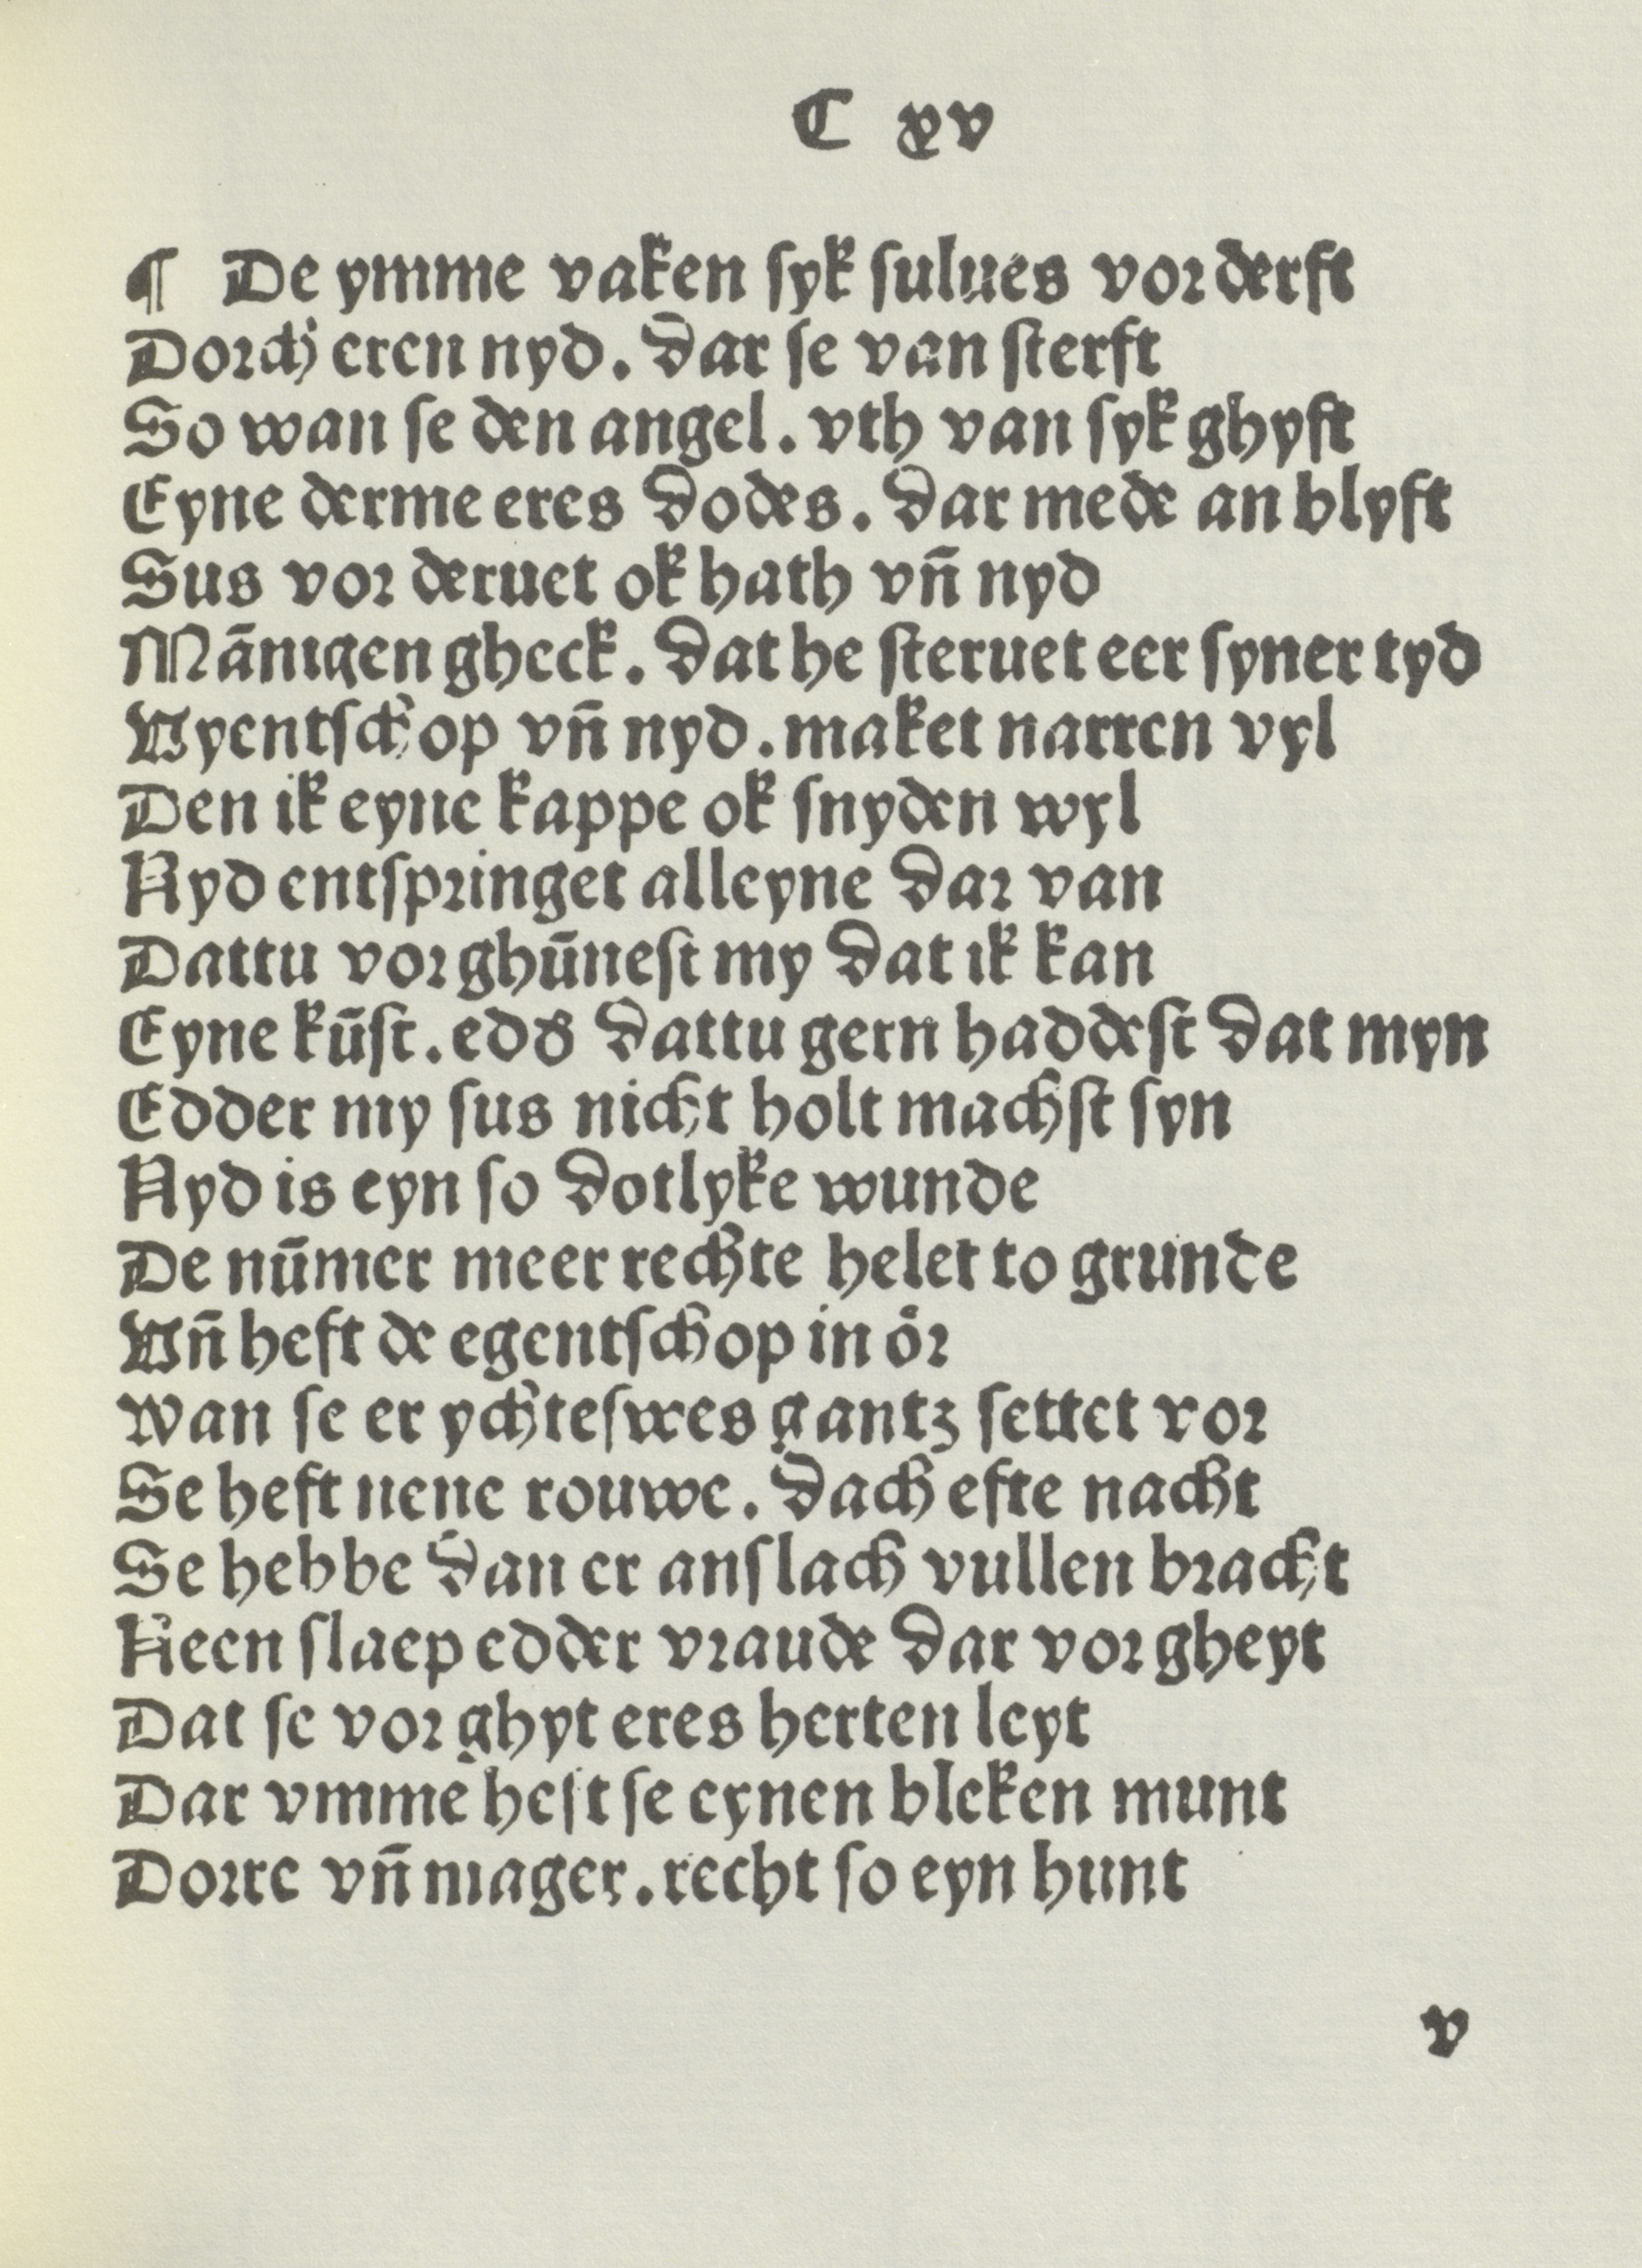 C xv
¶ De ymme vaken syk sulues vor derft
Dorch eren nyd. dar se van sterft
So wan se den angel. vth van syk ghyft
Eyne derme eres dodes. dar mede an blyft
Sus vor deruet ok hath vñ nyd
Mānigen gheck. dat he steruet eer syner tyd
Vyentschop vñ nyd. maket narren vyl
Den ik eyne kappe ok snyden wyl
Nyd entspringet alleyne dar van
Dattu vor ghūnest my dat ik kan
Eyne kūst. edď dattu gern haddest dat myn
Edder my sus nicht holt machst syn
Nyd is eyn so dotlyke wunde
De nūmer meer rechte helet to grunde
Vñ heft de egentschop in oͤr
Wan se er ychteswes gantz settet vor
Se heft nene rouwe. dach efte nacht
Se hebbe dan er anslach vullen bracht
Neen slaep edder vraude dar vor gheyt
Dat se vor ghyt eres herten leyt
Dar vmme heft se eynen bleken munt
Dorre vñ mager. recht so eyn hunt
v